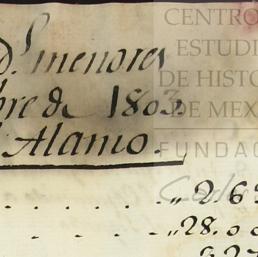 D.ˢ menores
bre de 1803.
Alamo.
CENTRO
ESTUDI
DE HISTO
DE MEX
FUNDAC
„ 26
„ 28. 0 0